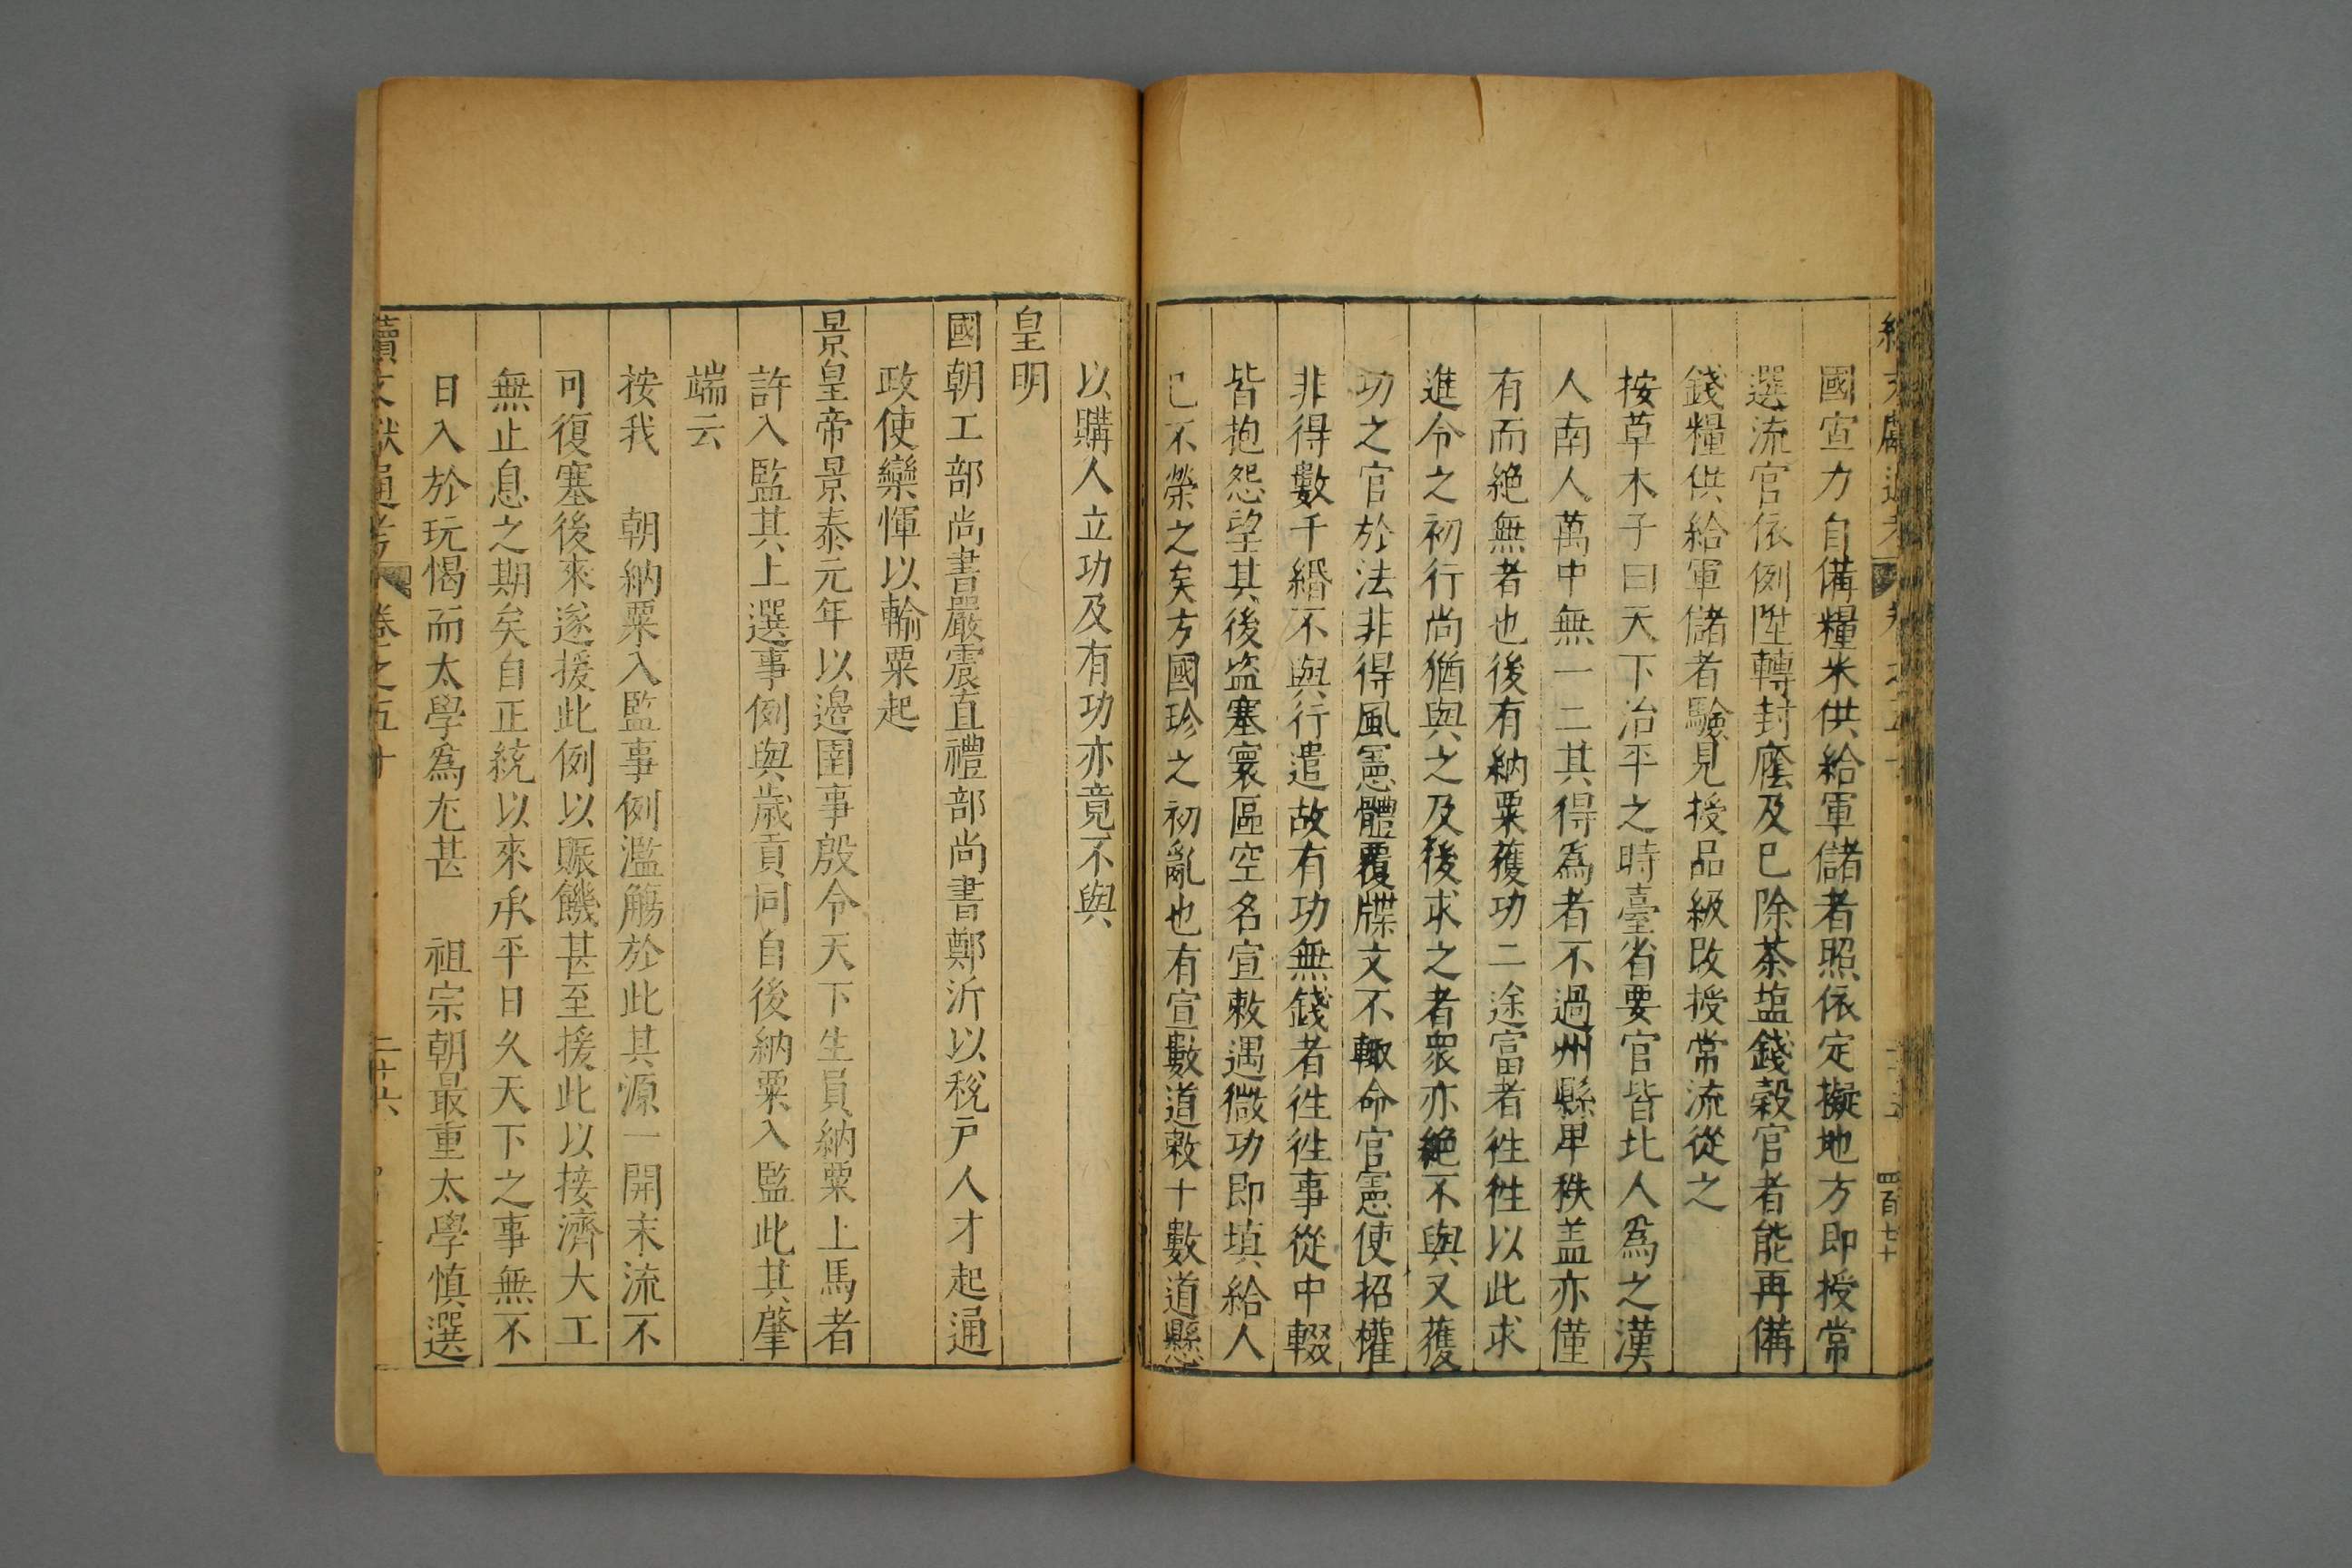 國宣力自備糧米供給軍儲者照依定擬地方即授常
選流官依例陞轉封廕及已除茶塩錢糓官者能再備
錢糧供給軍儲者驗見授品級改授常流從之
按草木子曰天下治平之時臺省要官皆北人爲之漢
人南人萬中無一二其得爲者不過州縣卑秩盖亦僅
有而絶無者也後有納粟獲功二途富者徃徃以此求
進令之初行尚猶與之及後求之者衆亦絶不與又獲
功之官於法非得風憲體覆牒文不輙命官憲使招權
非得數千緡不與行遣故有功無錢者徃徃事從中輟
皆抱怨望其後盗塞寰區空名宣敕遇微功即填給人
已不榮之矣方國珍之初亂也有宣數道敕十數道懸
以購人立功及有功亦竟不與
皇明
國朝工部尚書嚴震直禮部尚書鄭沂以稅戸人才起通
政使欒惲以輸粟起
景皇帝景泰元年以邊圉事殷令天下生員納粟上馬者
許入監其上選事例與歲貢同自後納粟入監此其肇
端云
按我 朝納粟入監事例濫觴於此其源一開末流不
可復塞後來遂援此例以賑饑甚至援此以接濟大工
無止息之期矣自正統以來承平日久天下之事無不
日入於玩愒而太學爲尤甚 祖宗朝最重太學慎選
續文獻通考 卷之五十 二十六